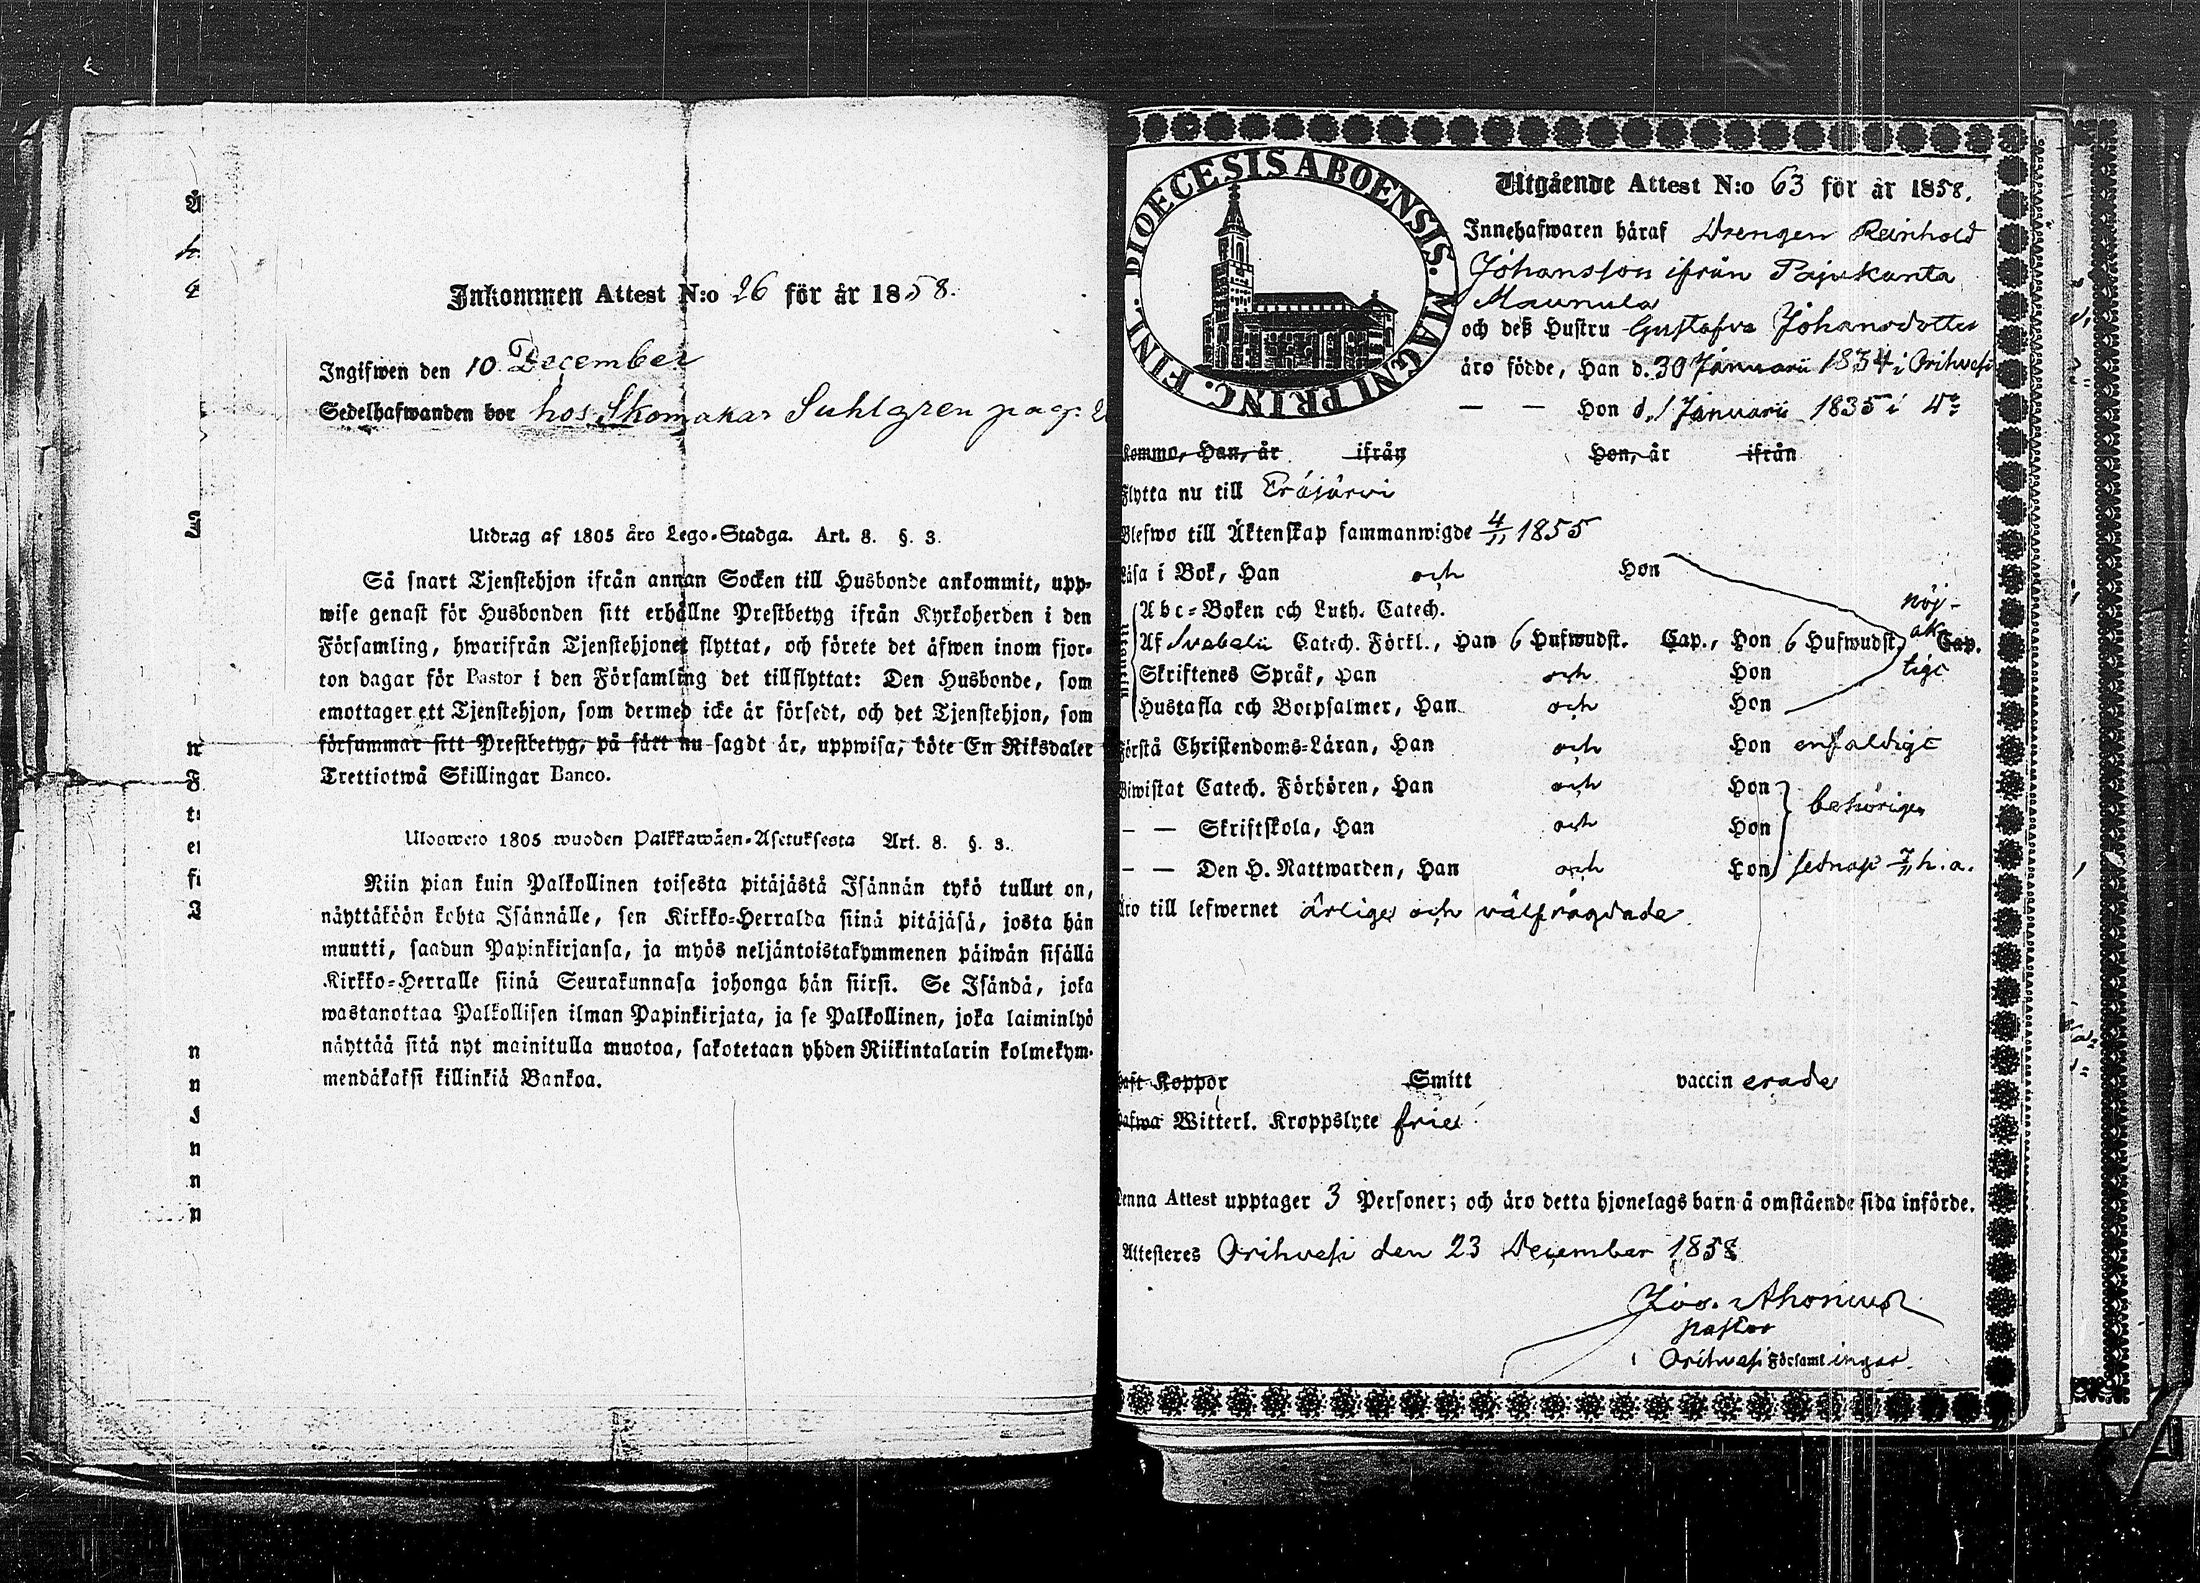 Inkommen Attest N:o 26 för år 1858.
Ingifwen den 10 December
Sedelhafwanden bor hos Skomakar Suhlgren pag.
Utdrag af 1805 års Lego-Stadga. Art. 8. §. 3.
Så snart Tjenstehjon ifrån annan Socken till Husbonde ankommit, upp-
wise genast för Husbonden sitt erhållne Prestbetyg ifrån Kyrkoherden i den
Församling, hwarifrån Tjenstehjonet flyttat, och förete det äfwen inom fjor-
ton dagar för Pastor i den Församling det tillflyttat: Den Husbonde, som
emottager ett Tjenstehjon, som dermed icke är försedt, och det Tjenstehjon, som
försummar sitt Prestbetyg, på sätt nu sagdt är, uppwisa, böte En Riksdaler
Trettiotwå Skillingar Banco.
Ulosweto 1805 wuoden Palkkawäen-Asetuksesta Art. 8. §. 3.
Niin pian kuin Palkollinen toisesta pitäjästä Isännän tykö tullut on,
näyttäköön kohta Isännälle, sen Kirkko-Herralda siinä pitäjäsä, josta hän
muutti, saadun Papinkirjansa, ja myös neljäntoistakymmenen päiwän sisällä
Kirkko-Herralle siinä Seurakunnasa johonga hän siirsi. Se Isändä, joka
wastanottaa Palkollisen ilman Papinkirjata, ja se Palkollinen, joka laiminlyö
näyttää sitä nyt mainitulla muotoa, sakotetaan yhden Riikintalarin kolmekym-
mendäkaksi killinkiä Bankoa.
DIOECESIS ABOENSIS. MAGNI PRINC. FINL.
Utgående Attest N:o 63 för år 1858.
Innehafwaren häraf Drengen Reinhold
Johansson ifrån Pajukanta
Maunula
och deß Hustru Gustafva Johansdotter
äro födde, Han d. 30 Januarii 1834 i Orihvesi
— — Hon d. 1 Januarii 1835 i
Komma, Han, år ifrån Hon, år ifrån
Flytta nu till Eräjärvi
Blefwo till Äktenskap sammanwigde 4/11 1855
Läsa i Bok, Han och Hon
Abc-Boken och Luth. Catech.
Af Svebelii Catech. Förkl., Han 6 Hufwudst. Cap., Hon 6 Hufwudst. Cap.
nöj-
ak
tige
Skriftenes Språk, Han och Hon
Hustafla och Botpsalmer, Han och Hon
Förstå Christendoms-Läran, Han och Hon enfaldige
Biwistat Catech. Förhören, Han och Hon
behörigen
— — Skriftskola, Han och Hon
— — Den H. Nattwarden, Han och Hon sednast 7/11 h. a.
Äro till lefwernet ärlige och välfrägdade
Haft Koppor Smitt vaccinerade
Hafwa Witterl. Kroppslyte frie
Denna Attest upptager 3 Personer; och äro detta hjonelags barn å omstående sida införde.
Attesteres Orihvesi den 23 December 1858
Ahonius
pastor
i Orihvesi Församlingar.